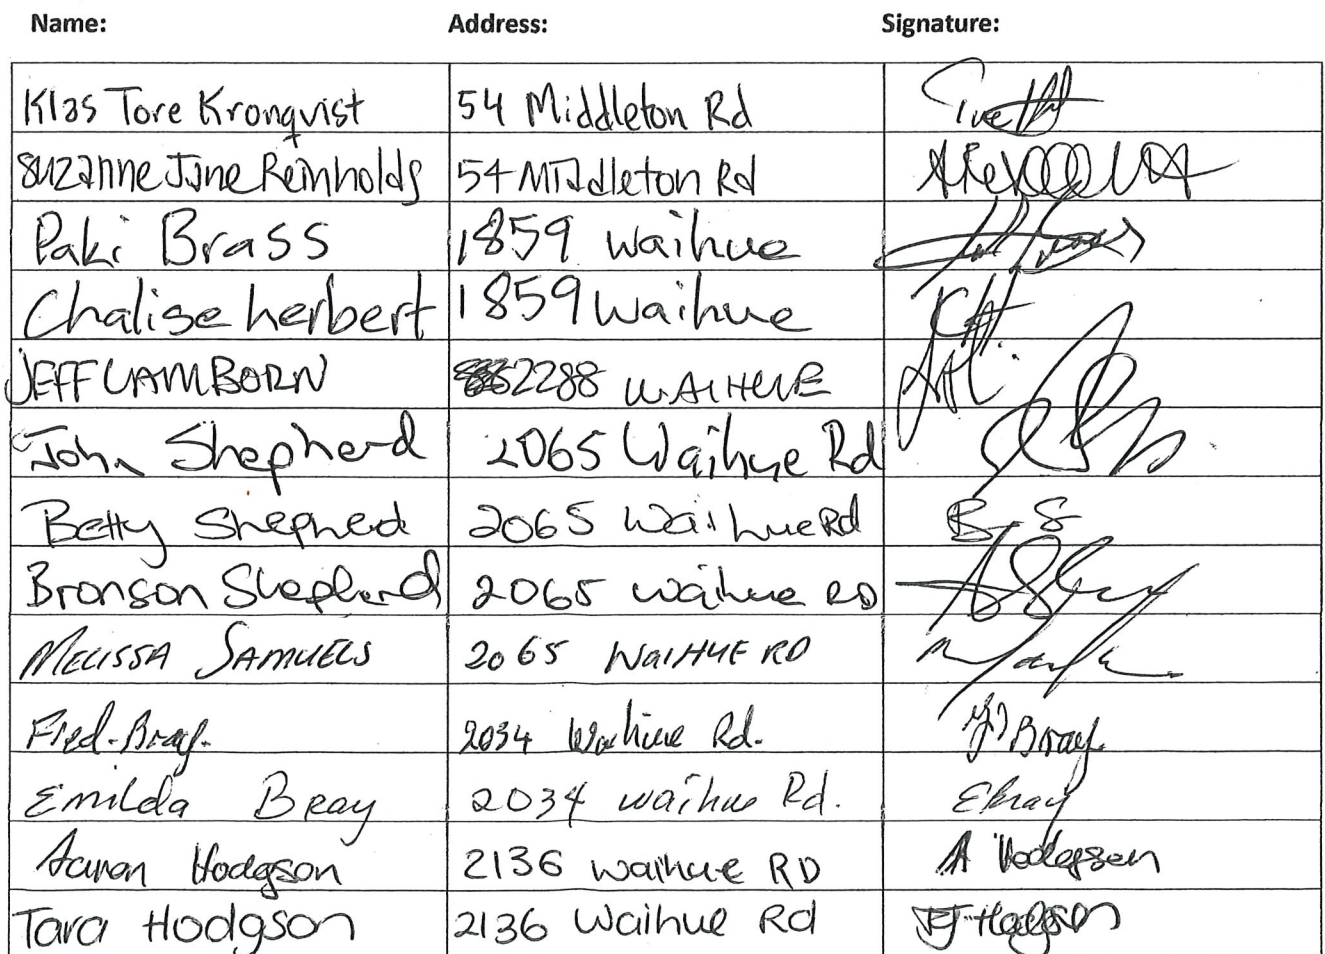 Name: Address: Signature:
Klas Tore Kronqvist 54 Middleton Rd
Suzanne Jane Reinholds 54 Middleton Rd
Paki Brass 1859 waihue
Chalise herbert 1859 waihue
JEFF 2288 WAIHUE
John Shepherd 2065 Waihue Rd
Betty Shepherd 2065 Waihue Rd B.S
Bronson Shepherd 2065 waihue RD
MELISSA SAMUELS 2065 WAIHUE RD
Fred. Bray. 2034 Waihue Rd. Bray
Emilda Bray 2034 waihue Rd. EBray
Aaron Hodgson 2136 waihue RD A Hodgson
Tara Hodgson 2136 Waihue Rd TJ Hodgson